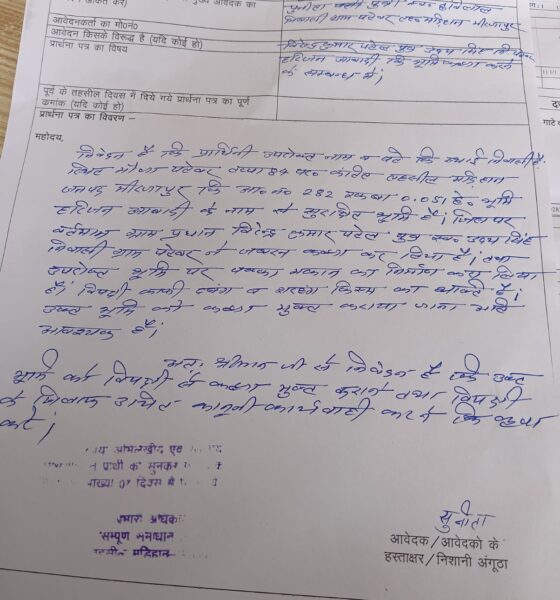 सुनीता पत्नी
निवासी ग्राम पटेवर तह० मड़िहान मीरजापुर
आवेदनकर्ता का मो०न०
आवेदन किसके विरूद्ध है (यदि कोई हो)
प्रार्थना पत्र का विषय
विरेन्द्र कुमार पटेल पुत्र उदय सिंह नि० पटेवर
हरिजन आबादी कि भूमि कब्जा करने
के सम्बन्ध में।
पूर्व के तहसील दिवस में दिये गये प्रार्थना पत्र का पूर्ण
क्रमांक (यदि कोई हो)
प्रार्थना पत्र का विवरण –
महोदय,
निवेदन है कि प्रार्थिनी उपरोक्त नाम व पते कि स्थाई निवासी है।
स्थित मौजा पटेवर तप्पा 84 पर० कन्तित तहसील मड़िहान
जनपद मीरजापुर कि आ० न० 282 रकबा 0.051 हे० भूमि
हरिजन आबादी के नाम से सुरक्षित भूमि है। जिस पर
वर्तमान ग्राम प्रधान विरेन्द्र कुमार पटेल पुत्र स्व० उदय सिंह
निवासी ग्राम पटेवर ने जबरन कब्जा कर लिया है। तथा
उपरोक्त भूमि पर पक्का मकान का निर्माण करा लिया
है। विपक्षी काफी दबंग व सरहंग किस्म का व्यक्ति है।
उक्त भूमि को कब्जा मुक्त कराया जाना अति
आवश्यक है।
अतः श्रीमान जी से निवेदन है कि उक्त
भूमि को विपक्षी से कब्जा मुक्त कराने तथा विपक्षी
के खिलाफ उचित कानूनी कार्यवाही करने कि कृपा
करें।
प्रार्थी को सुनकर
दिवस में
सम्पूर्ण समाधान
सुनीता
आवेदक/आवेदको के
हस्ताक्षर/निशानी अंगूठा